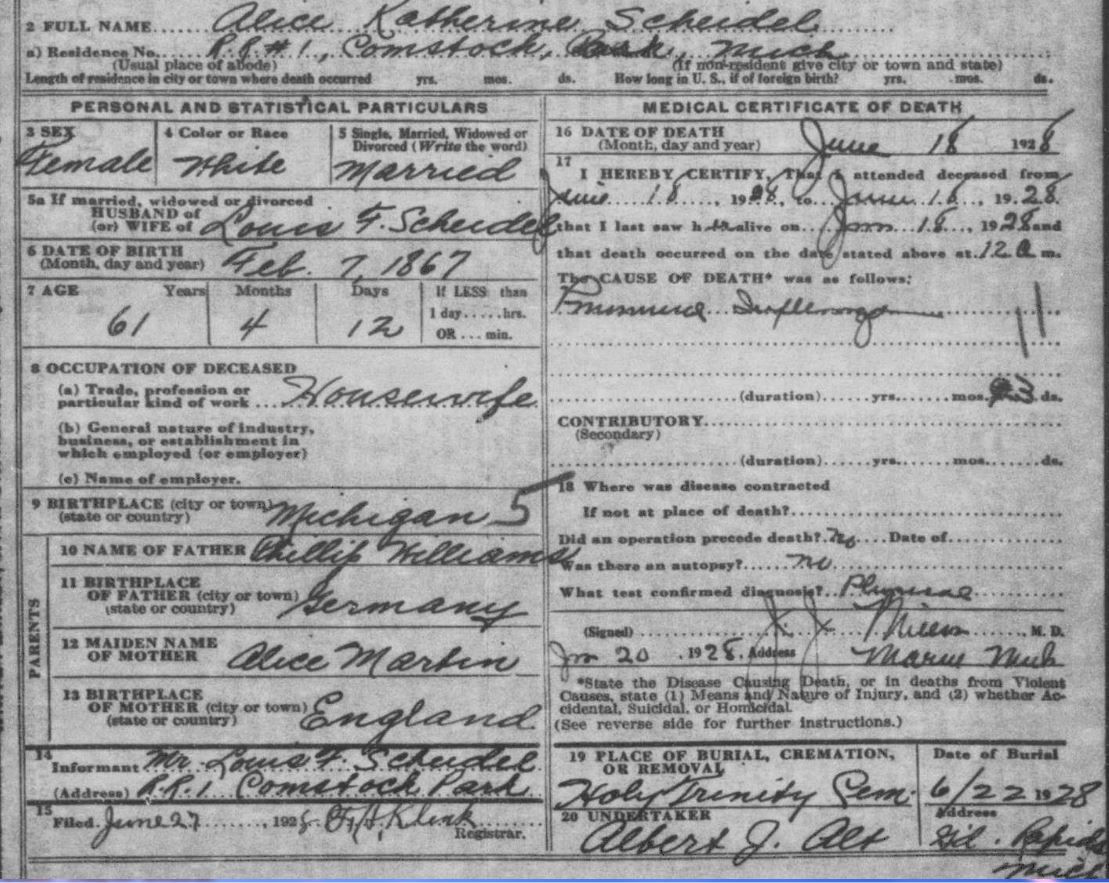 2 FULL NAME Alice Katherine Scheidel
a) Residence No. R.R.#1, Comstock, Park, Mich
(Usual place of abode) (If non-resident give city or town and state)
Length of residence in city or town where death occurred yrs. mos. ds. How long in U. S., if of foreign birth? yrs. mos. ds.
PERSONAL AND STATISTICAL PARTICULARS
3 SEX 4 Color or Race 5 Single, Married, Widowed or
Divorced (Write the word)
Female White Married
5a If married, widowed or divorced
HUSBAND of
(or) WIFE of Louis F. Scheidel
6 DATE OF BIRTH
(Month, day and year) Feb. 7, 1867
7 AGE Years Months Days If LESS than
1 day.....hrs.
61 4 12 OR ... min.
8 OCCUPATION OF DECEASED
(a) Trade, profession or
particular kind of work Housewife
(b) General nature of industry,
business, or establishment in
which employed (or employer)
(c) Name of employer.
9 BIRTHPLACE (city or town)
(state or country) Michigan 5
PARENTS
10 NAME OF FATHER Phillip Williams
11 BIRTHPLACE
OF FATHER (city or town)
(state or country) Germany
12 MAIDEN NAME
OF MOTHER Alice Martin
13 BIRTHPLACE
OF MOTHER (city or town)
(state or country) England
14
Informant Mr. Louis F. Scheidel
(Address) R.R.1 Comstock Park
15
Filed June 27, 1928 Klenk
Registrar.
MEDICAL CERTIFICATE OF DEATH
16 DATE OF DEATH
(Month, day and year) June 18 1928
17
I HEREBY CERTIFY, That I attended deceased from
June 18, 1928, to June 18, 1928
that I last saw h alive on June 18, 1928 and
that death occurred on the date stated above at 12 a m.
The CAUSE OF DEATH* was as follows:
11
(duration) yrs. mos. 3 ds.
CONTRIBUTORY
(Secondary)
(duration) yrs. mos. ds.
18 Where was disease contracted
If not at place of death?
Did an operation precede death? No Date of
Was there an autopsy? no
What test confirmed diagnosis?
(Signed) J. J. M. D.
20, 1928. Address Mich
*State the Disease Causing Death, or in deaths from Violent
Causes, state (1) Means and Nature of Injury, and (2) whether Ac-
cidental, Suicidal, or Homicidal.
(See reverse side for further instructions.)
19 PLACE OF BURIAL, CREMATION,
OR REMOVAL Date of Burial
Holy Trinity Cem. 6/22 1928
20 UNDERTAKER Address
Albert J. Alt Gd. Rapids
Mich